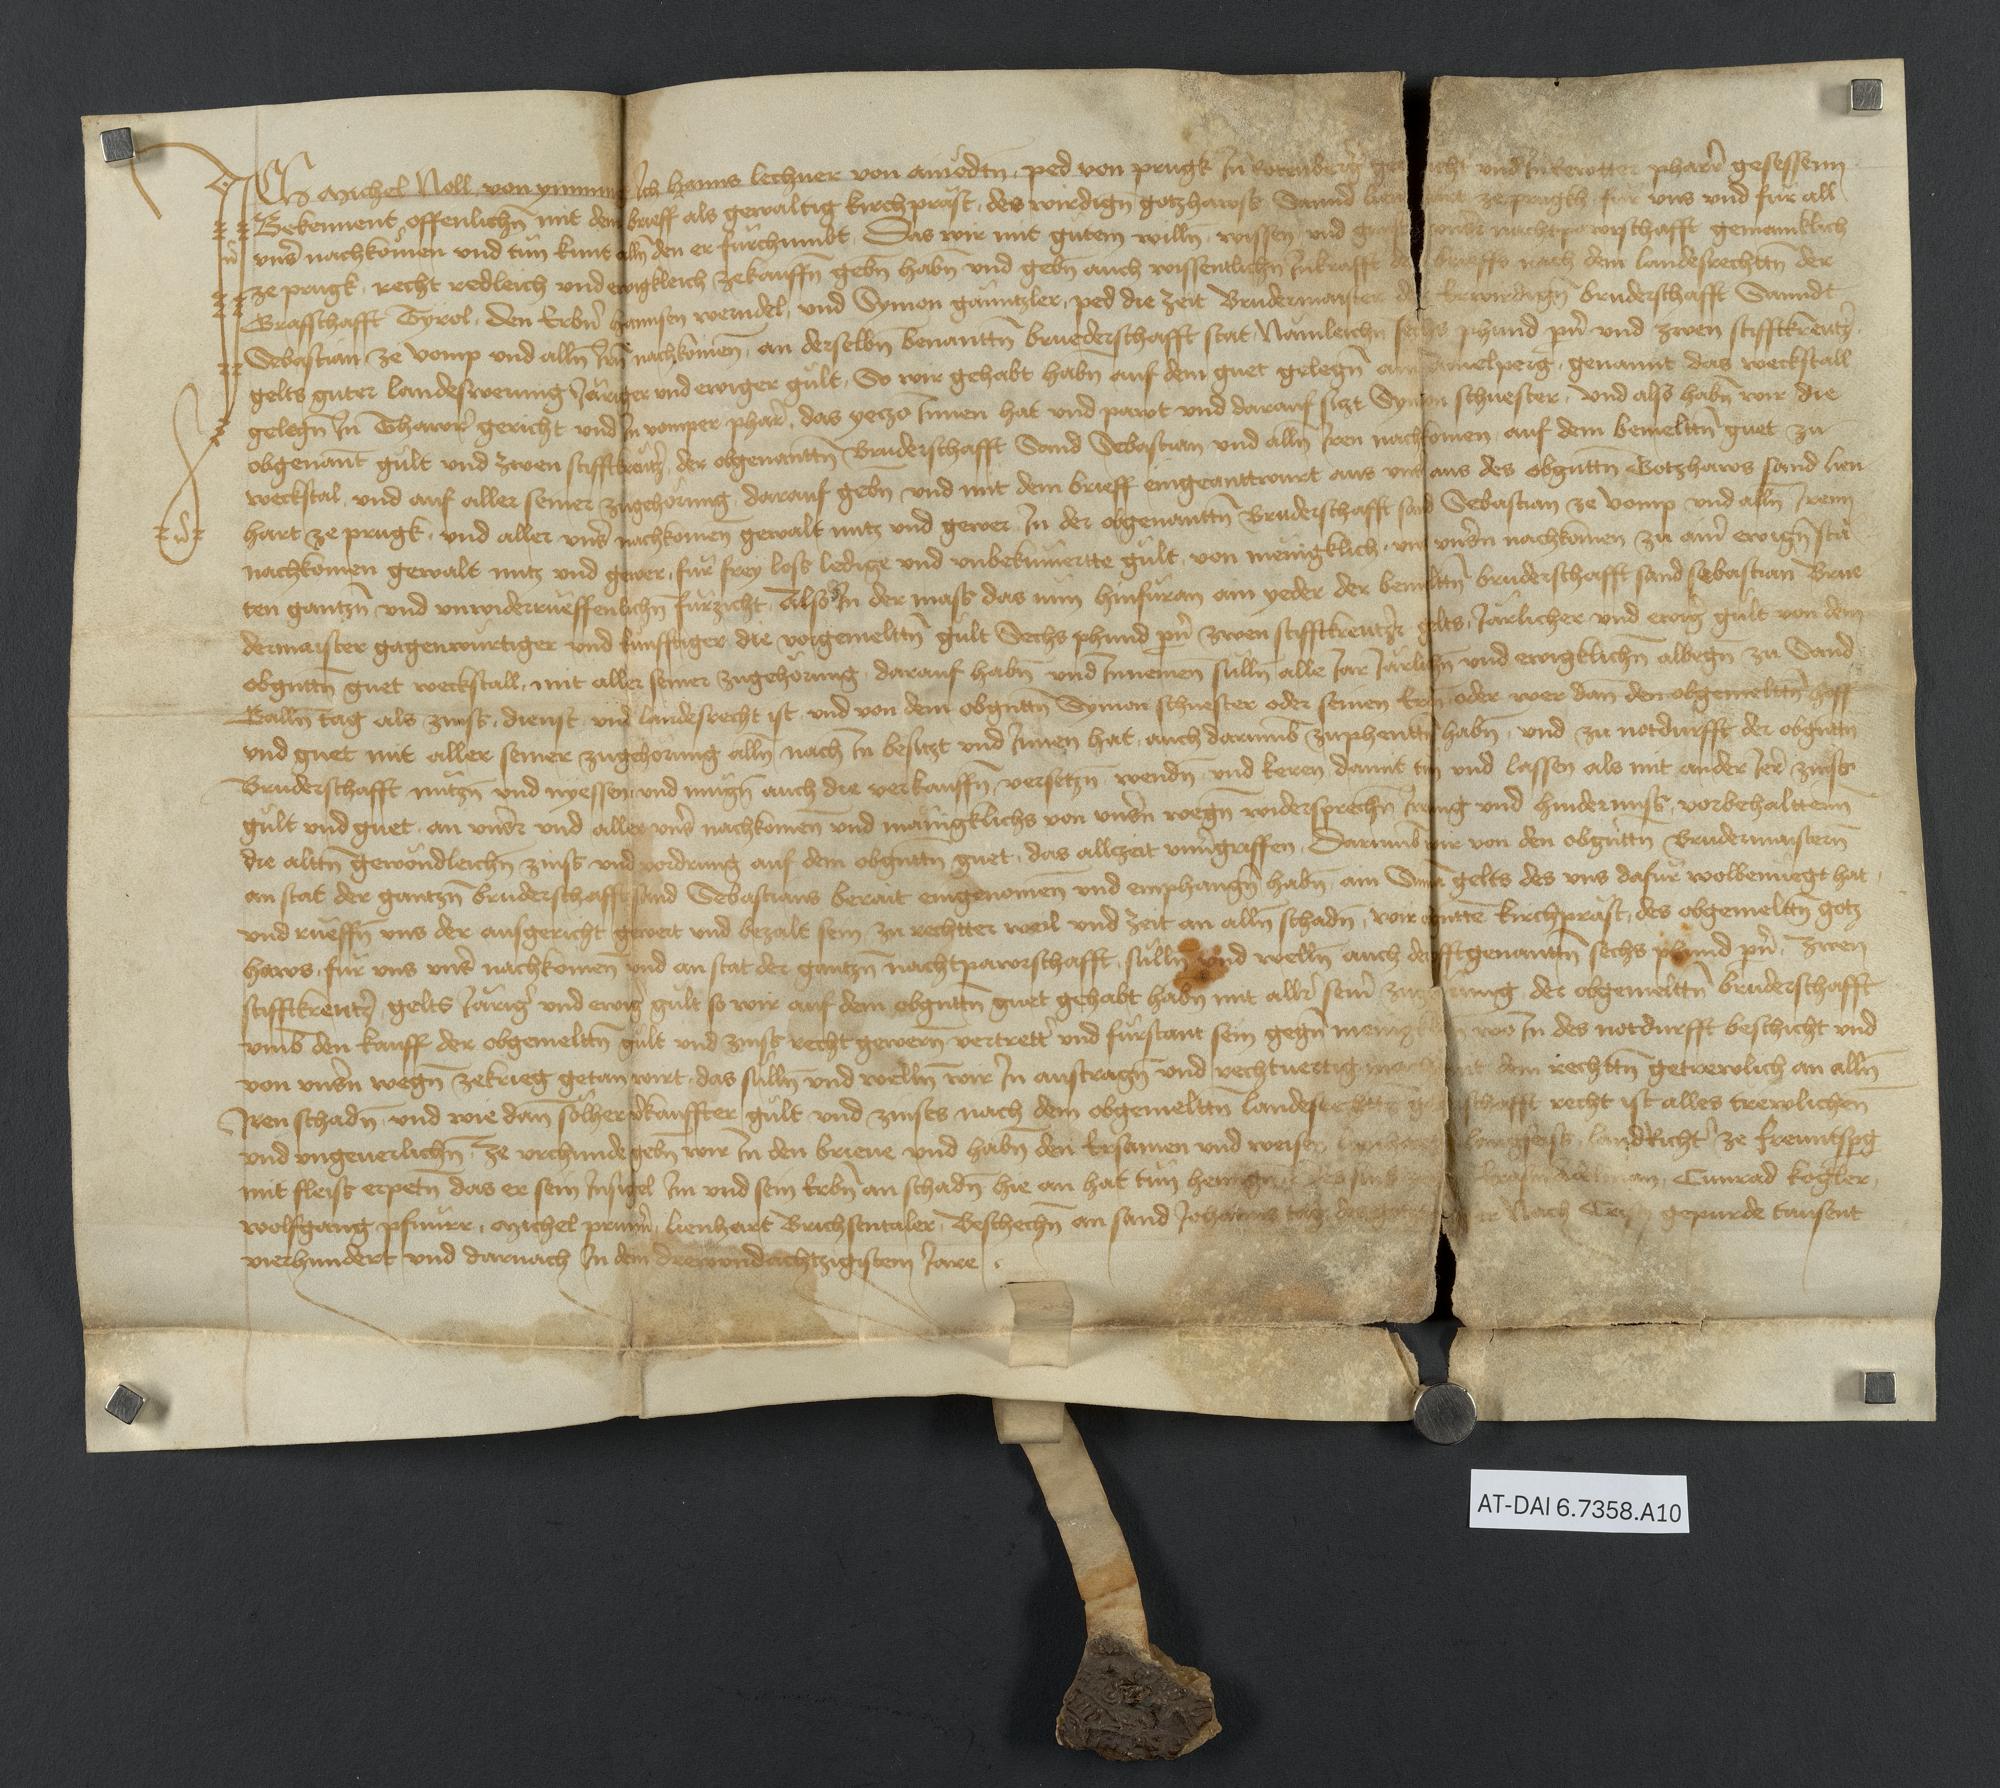 Ich Michel Noll von ymming Ich Hanns lechner von ainödtn, ped von prugk In Rotenberg̃ vnd In Rewtter pharr̃ gesessenn
Bekennent offenlichn̄ mit dem brieff als gewaltig kirchpräst, des wirdign̄ gotzhawss Sannd ze prugkh für vns vnd für all
vnsr̃ nachkömen vnd tün kunt alln̄ den er fürchumbt, Das wir mit gütem willn̄, wissen vnd vnsr̃ nachtpawrschafft gemainklich
ze prugk, recht redleich vnd ewigkleich zekauffn̄ gebn̄ habn̄ vnd gebn̄ auch wissentlichn̄ Inkrafft des brieffs nach dem landesrechttn̄ der
Grafschafft Tyrol, den Erbr̃n hannsen werndel, vnd Symon gäwntzler, ped die zeit Brudermaister der Erwirdign̄ bruderschafft Sanndt
Sebastian ze vomp vnd alln̄ Irn̄ nachkömen, an derselbn̄ benanttn̄ bruederschafft stat, Nämleichn̄ sechs phund pr̃n vnd zwen stifftkrewtz̃
gelts güter landeswerung Järiger vnd ewiger gült, So wir gehabt habn̄ auf dem guet gelegn̄ am genannt das weckstall
gelegn̄ In Thawrr̃ gericht vnd In vomper pharr̃, das yeczo Innen hat vnd pawt vnd darauf siczt Symon schuester, vnd also habn̄ wir die
obgenant gült vnd zwen stifftkrewtz̃, der obgenanttn̄ Bruderschafft Sand Sebastian vnd alln̄ Iren nachkömen, auf dem bemelttn̄ guet zu
weckstal, vnd auf aller seiner zugehörung, darauf gebn̄ vnd mit dem brieff eingeanttwurt aus vns aus des obgnttn̄ Gotzhaws sand lien
hart ze prugk, vnd aller vnsr̃ nachkömen gewalt nutz vnd gewer, In der obgenanttn̄ Bruderschafft sand Sebastian ze vomp vnd alln̄ Irenn
nachkömen gewalt nutz vnd gewer, für frey loss ledige vnd vnbekümertte gült, von menigklich, vnd vnsr̃n nachkömen zu aim̄ ewign̄ stä
ten gantzn̄ vnd vnwiderrueffenlichn̄ fürzicht, Also In der mass das nun hinfüran ain yeder der bemelttn̄ bruderschafft sand sebastian Brue
dermaister gagenwürtiger vnd künfftiger die vorgemelttn̄ gült Sechs phund pr̃n zwen stifftkrewtz̃ gelts, Järlicher vnd ewig̃ gült von dem
obgnttn̄ guet weckstall, mit aller seiner zugehörung, darauf habn̄ vnd Innemen sülln̄ alle Jar Järlichn̄ vnd ewigklichn̄ albegn̄ zu Sand
Galln̄ tag als zinss, dienst vnd landesrecht ist, vnd von dem obgnttn̄ Symon schuester oder seinen Erbn̄ oder wer dan̄ den obgemelttn̄ hoff
vnd guet mit aller seiner zugehörung alln̄ nach In besitzt vnd Innen hat, auch darumb zuphenttn̄ habn̄, vnd zu notdurfft der obgnttn̄
Bruderschafft nützn̄ vnd nyessen vnd mügn̄ auch die verkauffn̄, versetzn̄ wendn̄ vnd keren damit tun vnd lassen als mit ander Irer̃ zinss
gült vnd guet, an vnsr̃ vnd aller vnsr̃ nachkömen vnd mäingklichs von vnsr̃n wegn̄ widersprechn̄ Irrung vnd hindernuss, vorbehaltten
die alttn̄ gewöndleichn̄ zinss vnd vordrung auf dem obgnttn̄ guet, das allzeit vnuergriffen, Darumb wir von den obgnttn̄ Brudermaistern̄
an stat der gantzn̄ bruderschafft sand Sebastians berait eingenomen vnd emphangn̄ habn̄, ain Sum̄ gelts des vns dafür wolbenüegt hat,
vnd rüeffn̄ vns der ausgericht gewert vnd bezalt sein, zu rechtter weil vnd zeit an alln̄ schadn̄, wir obgnttn̄ kirchpräst, des obgemelttn̄ gotz
haws, für vns vnsr̃ nachkömen vnd an stat der gantzn̄ nachtpawrschafft, sülln̄ vnd welln̄ auch der offtgenanttn̄ sechs phund pr̃n, zwen
stifftkrewtz̃, gelts Järig̃ vnd ewig̃ gült so wir auf dem obgnttn̄ guet gehabt habn̄ mit allr̃ seinr̃ zugehörung, der obgemelttn̄ bruderschafft
vmb den kauff der obgemelttn̄ gült vnd zinss recht gewern̄ vertretter̃ vnd fürstant sein gegn̄ menigklichn̄ wo In des notdurfft beschicht vnd
von vnsr̃n wegn̄ zekrieg getan wirt, das sülln̄ vnd welln̄ wir In austragn̄ vnd rechtuertig mit dem rechttn̄ getrewlich an alln̄
Iren schadn̄ vnd wie dan̄ sölher verkauffter gült vnd zinss nach dem obgemelttn̄ landesrechttn̄ recht ist alles trewlichen
vnd vngeuerlichn̄, Ze vrchunde gebn̄ wir In den brieue vnd habn̄ den Ersamen vnd weisen landRicht̃ ze freuntspg̃
mit fleiss erpetn̄ das er sein Insigel Im vnd sein Erbn̄ an schadn̄ hie an hat tün Cunrad kogler,
wolfgang pfnürr, Michel prunnr̃, lienhart Brichsentaler, Beschechn̄ an sand Johanns tag Nach Cristi gepurde tausent
vierhundert vnd darnach In dem drewundachtzigistem Jare.
AT-DAI 6.7358.A10